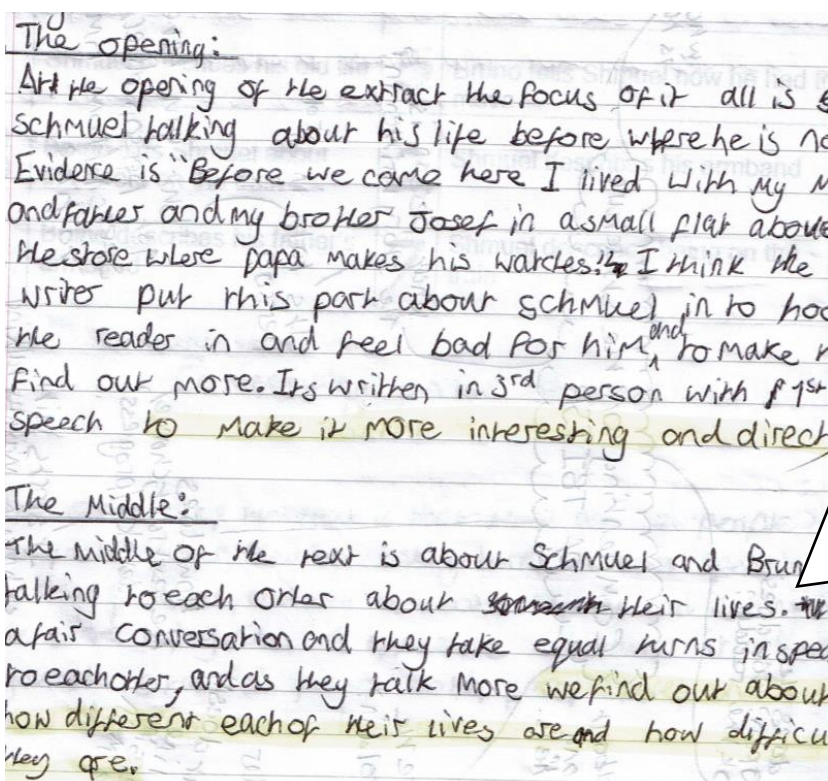 The opening:
At the opening of the extract the focus of it all is
schmuel talking about his life before where he is no
Evidence is "Before we came here I lived with my M
and father and my brother Josef in a small flat above
the store where papa makes his watches." I think the
writer put this part about schmuel in to hoo
the reader in and feel bad for him, and to make
find out more. Its written in 3rd person with 1st
speech to make it more interesting and direct
The Middle:
The middle of the text is about Schmuel and Brun
talking to each other about their lives.
a fair conversation and they take equal turns in spea
to each other, and as they talk more we find out about
how different each of their lives are and how difficu
they are.